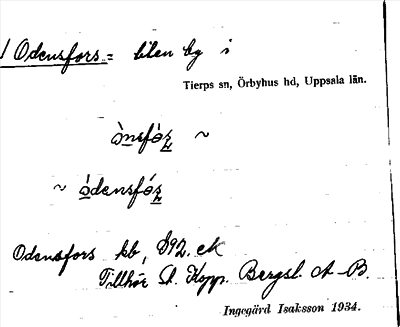 1 Odensfors = liten by i
Tierps sn, Örbyhus hd, Uppsala län.
ònsfòṣ ~
~ ódensfóṣ
Odensfors kb, S92. ek
Tillhör St. Kopp. Bergsl. A-B.
Ingegärd Isaksson 1934.